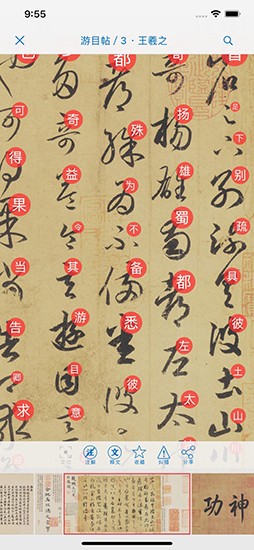 9:55
游目帖 / 3 · 王羲之
足下别疏具彼土山
奇扬雄蜀都左太
都殊为不备悉彼
奇益令其游目意
可得果当告卿求
注解 释文 收藏 纠错 分享
神功